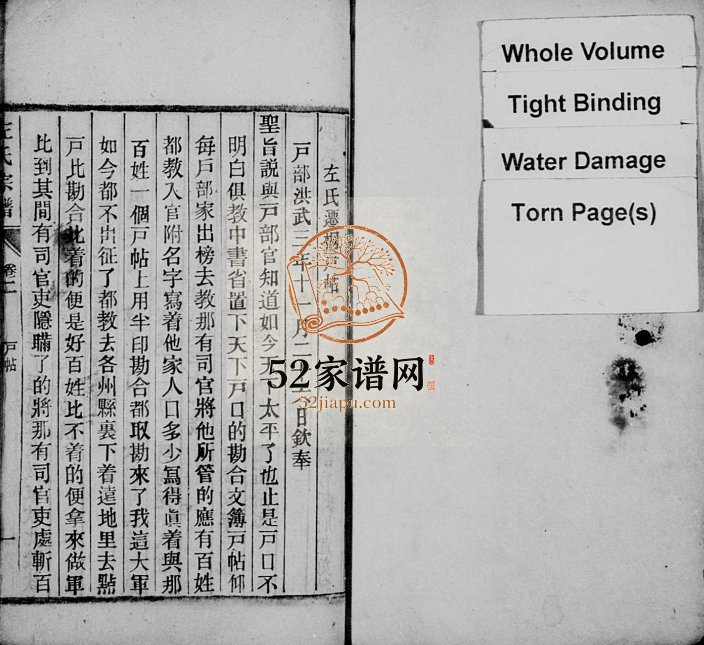 Whole Volume
Tight Binding
Water Damage
Torn Page(s)
左氏遷桐戸帖
戸部洪武三年十一月二十六日欽奉
聖旨説與戸部官知道如今天下太平了也止是戸口不
明白俱教中書省置下天下戸口的勘合文簿戸帖仰
每戸部家出榜去教那有司官將他所管的應有百姓
都教入官附名字寫着他家人口多少寫得眞着與那
百姓一個戸帖上用半印勘合都取勘來了我這大軍
如今都不出征了都教去各州縣裏下着遶地里去點
戸比勘合比着的便是好百姓比不着的便拿來做軍
比到其間有司官吏隱瞞了的將那有司官吏處斬百
左氏宗譜
卷二
戸帖
一
52家谱网
52jiapu.com